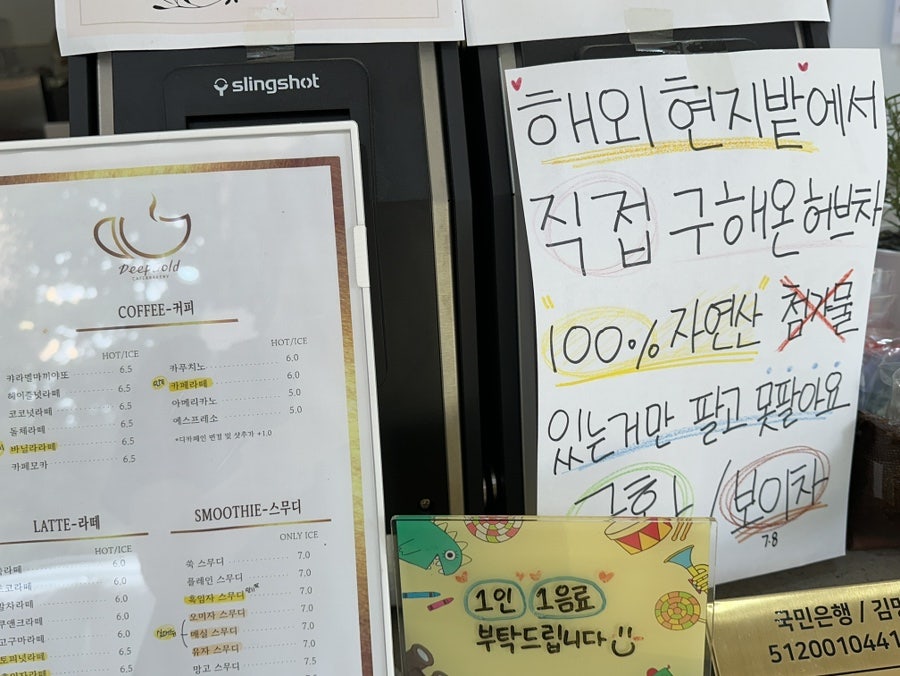 slingshot
해외 현지밭에서
직접 구해온 허브차
"100% 자연산" 첨가물
있는거만 팔고 못팔아요
/ 보이차
7.8
COFFEE-커피
HOT/ICE
카라멜마끼아또 6.5
헤이즐넛라떼 6.5
코코넛라떼 6.5
돌체라떼 6.5
바닐라라떼 6.5
카페모카 6.5
HOT/ICE
카푸치노 6.0
카페라떼 6.0
아메리카노 5.0
에스프레소 5.0
*디카페인 변경 및 샷추가 +1.0
LATTE-라떼
HOT/ICE
6.0
6.0
6.0
6.0
6.0
6.5
SMOOTHIE-스무디
ONLY ICE
쑥 스무디 7.0
플레인 스무디 7.0
흑임자 스무디 7.0
오미자 스무디 7.0
매실 스무디 7.0
유자 스무디 7.0
망고 스무디 7.5
1인 1음료
부탁드립니다
국민은행 /
5120010441